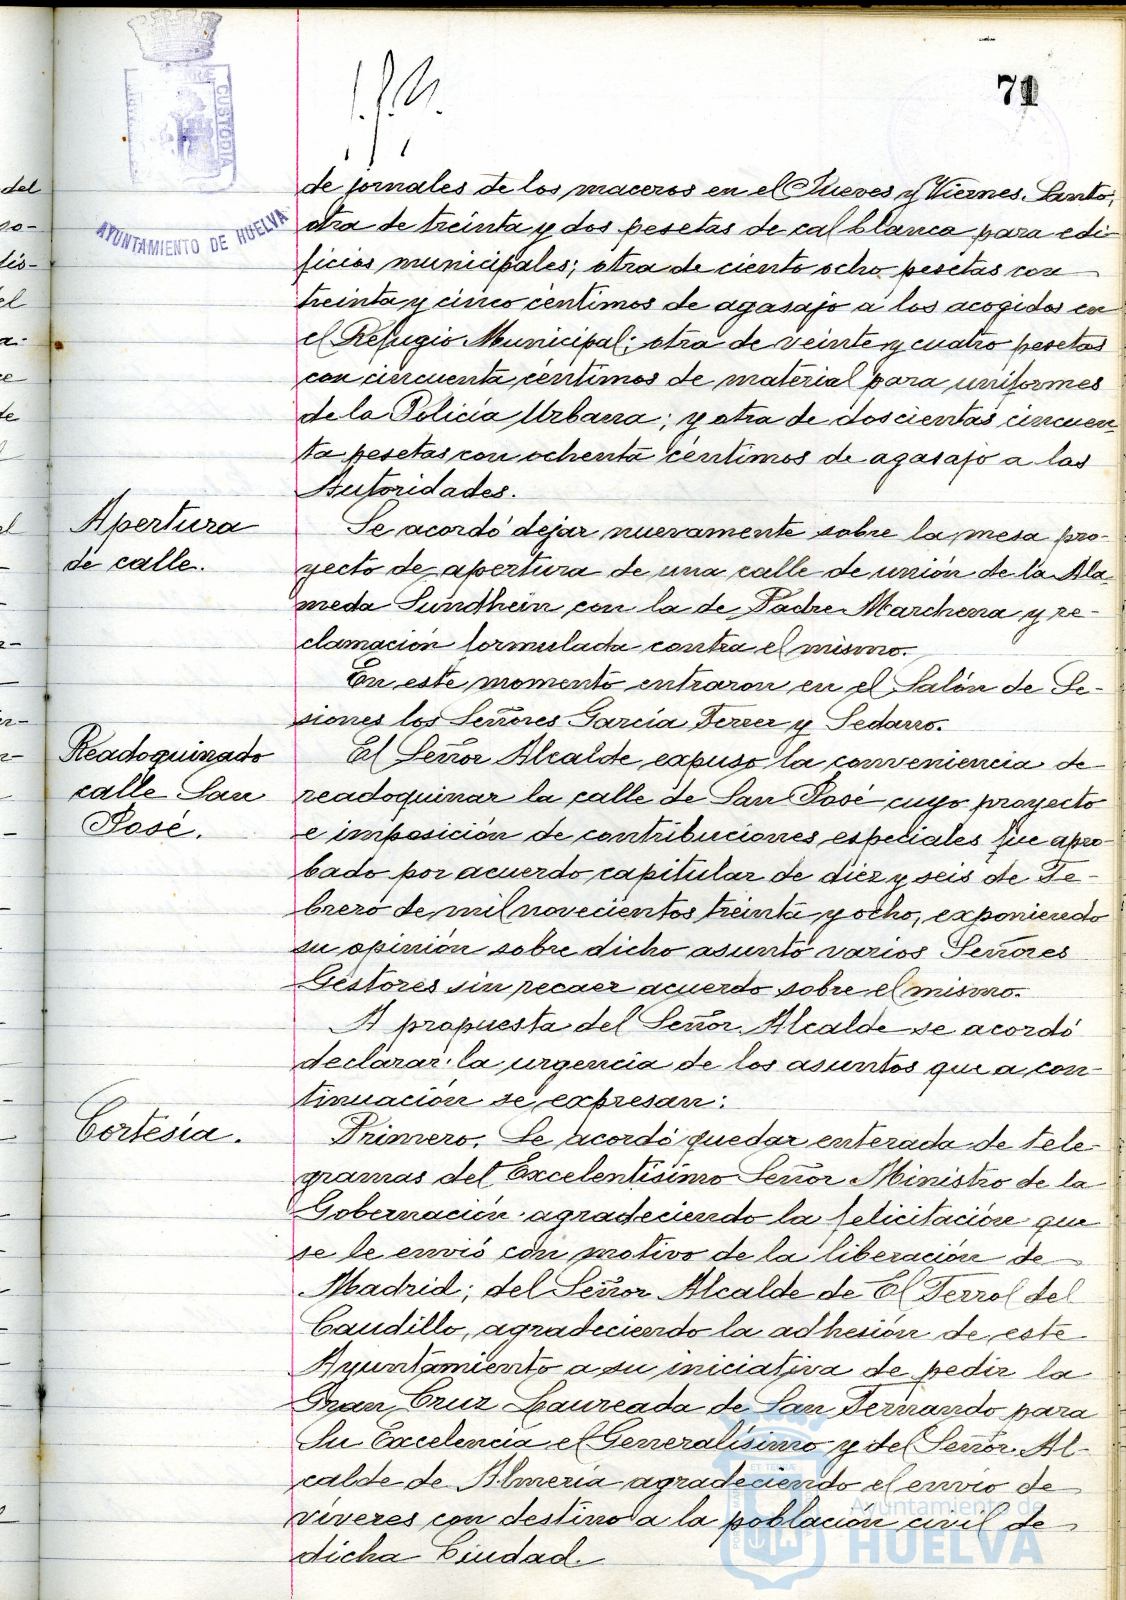 71
CUSTODIA
AYUNTAMIENTO DE HUELVA
de jornales de los maceros en el Jueves y Viernes Santo;
otra de treinta y dos pesetas de cal blanca para edi-
ficios municipales; otra de ciento ocho pesetas con
treinta y cinco céntimos de agasajo a los acogidos en
el Refugio Municipal; otra de veinte y cuatro pesetas
con cincuenta céntimos de material para uniformes
de la Policía Urbana; y otra de doscientas cincuen-
ta pesetas con ochenta céntimos de agasajo a las
Autoridades.
Apertura
de calle.
Se acordó dejar nuevamente sobre la mesa pro-
yecto de apertura de una calle de unión de la Ala-
meda Sundhein con la de Padre Marchena y re-
clamación formulada contra el mismo.
En este momento entraron en el Salón de Se-
siones los Señores García Ferrer y Sedarro.
Readoquinado
calle San
José.
El Señor Alcalde expuso la conveniencia de
readoquinar la calle de San José cuyo proyecto
e imposición de contribuciones especiales fue apro-
bado por acuerdo capitular de diez y seis de Fe-
brero de mil novecientos treinta y ocho, exponiendo
su opinión sobre dicho asunto varios Señores
Gestores sin recaer acuerdo sobre el mismo.
A propuesta del Señor Alcalde se acordó
declarar la urgencia de los asuntos que a con-
tinuación se expresan:
Cortesía.
Primero. Se acordó quedar enterada de tele-
gramas del Excelentísimo Señor Ministro de la
Gobernación agradeciendo la felicitación que
se le envió con motivo de la liberación de
Madrid; del Señor Alcalde de El Ferrol del
Caudillo, agradeciendo la adhesión de este
Ayuntamiento a su iniciativa de pedir la
Gran Cruz Laureada de San Fernando para
Su Excelencia el Generalísimo y del Señor Al-
calde de Almería agradeciendo el envío de
víveres con destino a la población civil de
dicha Ciudad.
Ayuntamiento de
HUELVA